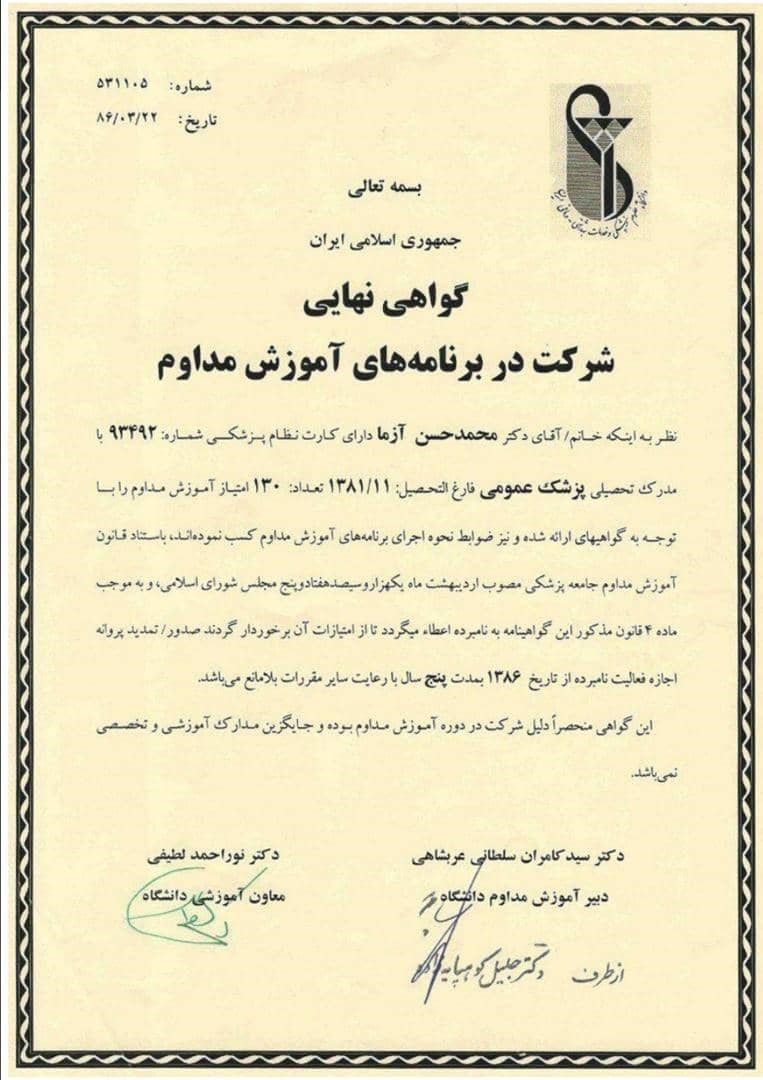 شماره: ۵۳۱۱۰۵
تاریخ: ۸۶/۰۳/۲۲
بسمه تعالی
جمهوری اسلامی ایران
گواهی نهایی
شرکت در برنامه‌های آموزش مداوم
نظر به اینکه خانم/ آقای دکتر محمدحسن آزما دارای کارت نظام پزشکی شماره: ۹۳۴۹۲ با
مدرک تحصیلی پزشک عمومی فارغ التحصیل: ۱۳۸۱/۱۱ تعداد: ۱۳۰ امتیاز آموزش مداوم را با
توجه به گواهیهای ارائه شده و نیز ضوابط نحوه اجرای برنامه‌های آموزش مداوم کسب نموده‌اند، باستناد قانون
آموزش مداوم جامعه پزشکی مصوب اردیبهشت ماه یکهزاروسیصدهفتادوپنج مجلس شورای اسلامی، و به موجب
ماده ۴ قانون مذکور این گواهینامه به نامبرده اعطاء میگردد تا از امتیازات آن برخوردار گردند صدور/ تمدید پروانه
اجازه فعالیت نامبرده از تاریخ ۱۳۸۶ بمدت پنج سال با رعایت سایر مقررات بلامانع می‌باشد.
این گواهی منحصراً دلیل شرکت در دوره آموزش مداوم بوده و جایگزین مدارک آموزشی و تخصصی
نمی‌باشد.
دکتر سیدکامران سلطانی عربشاهی
دبیر آموزش مداوم دانشگاه
از طرف دکتر جلیل کوهپایه‌زاده
دکتر نوراحمد لطیفی
معاون آموزشی دانشگاه